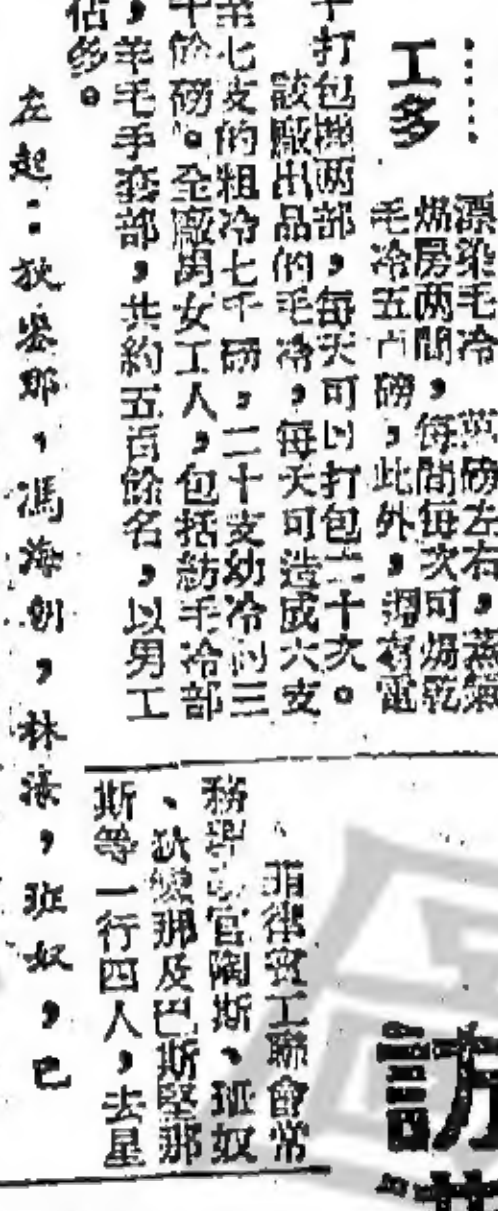 工多
漂染毛冷 磅左右，蒸氣
焗房两間，每間每次可焗乾
毛冷五百磅，此外，還有電
打包機两部，每天可以打包二十次。
該廠出品的毛冷，每天可造成六支
至七支的粗冷七千磅，二十支幼冷的三
千餘磅。全廠男女工人，包括紡毛冷部
，羊毛手套部，共約五百餘名，以男工
佔多。
左起：狄 那，馮海朝，林 ，班奴，巴
訪
菲律賓工聯會常
務 官陶斯、班奴
、狄 那及巴斯堅那
斯等一行四人，去星